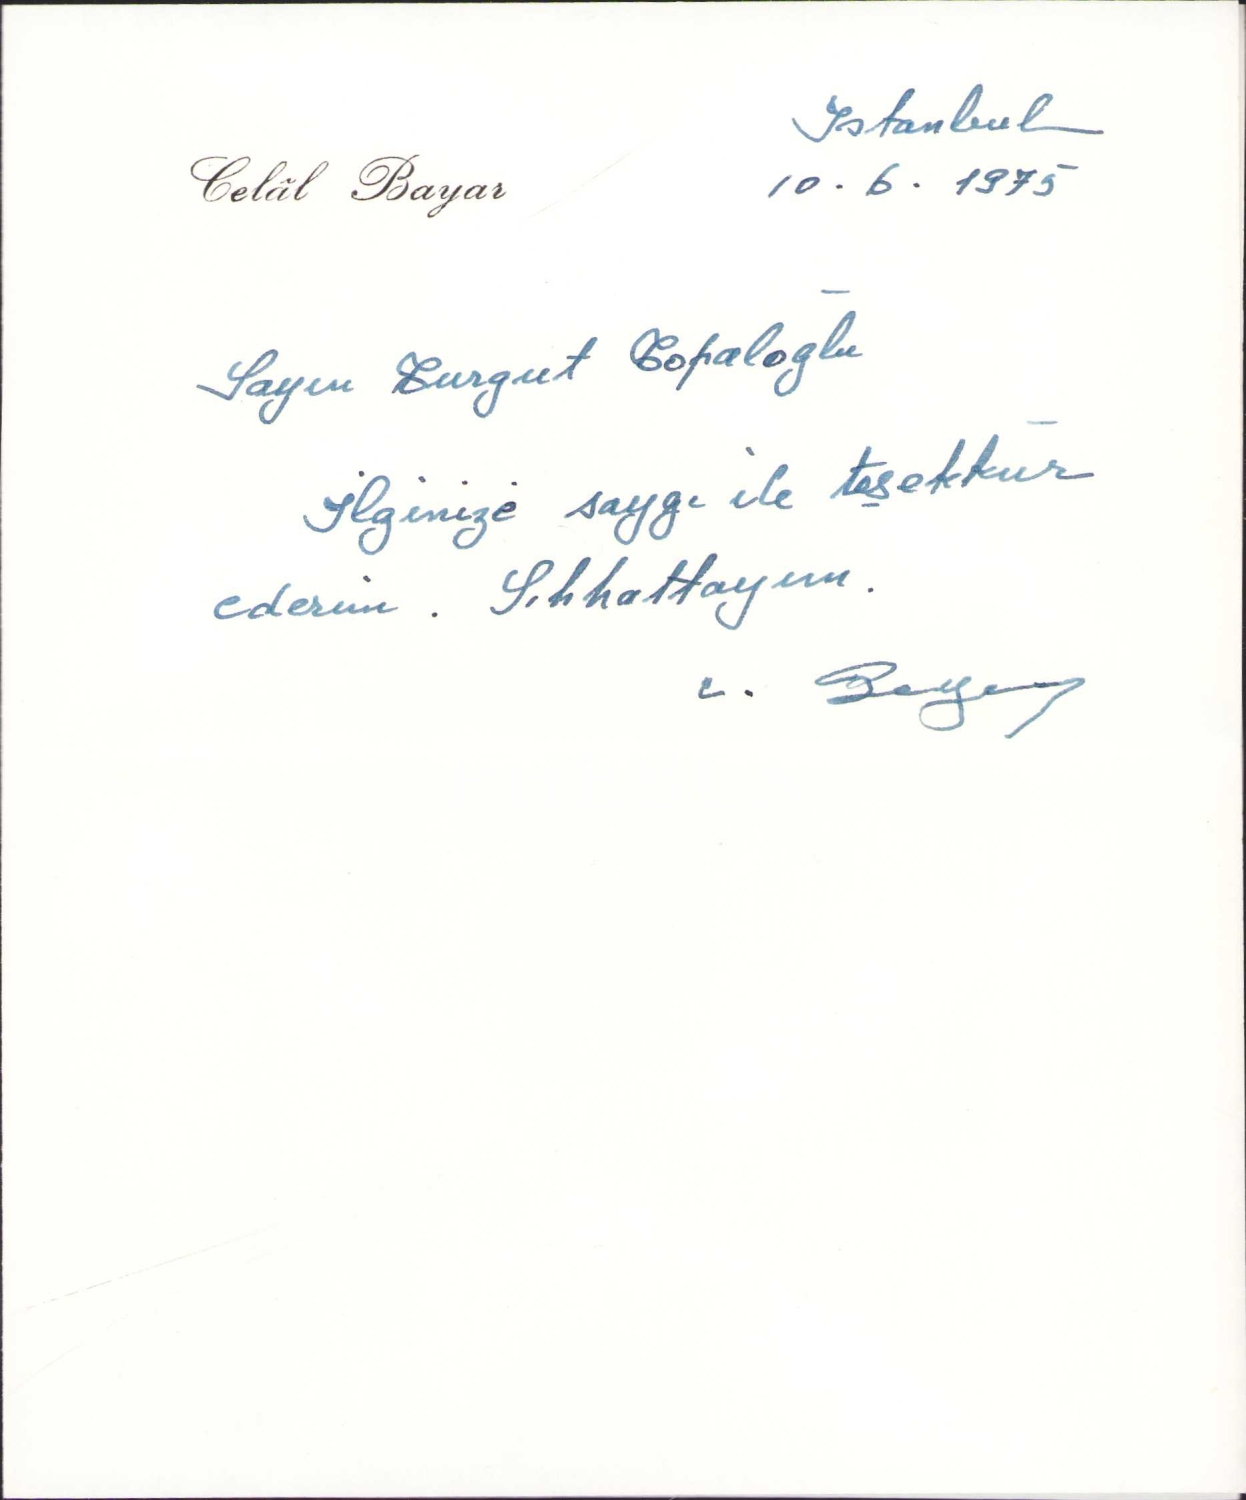 Istanbul
Celâl Bayar
10.6.1975
Sayın Turgut Topaloğlu
İlginize saygı ile teşekkür
ederim. Sıhhattayım.
C. Bayar